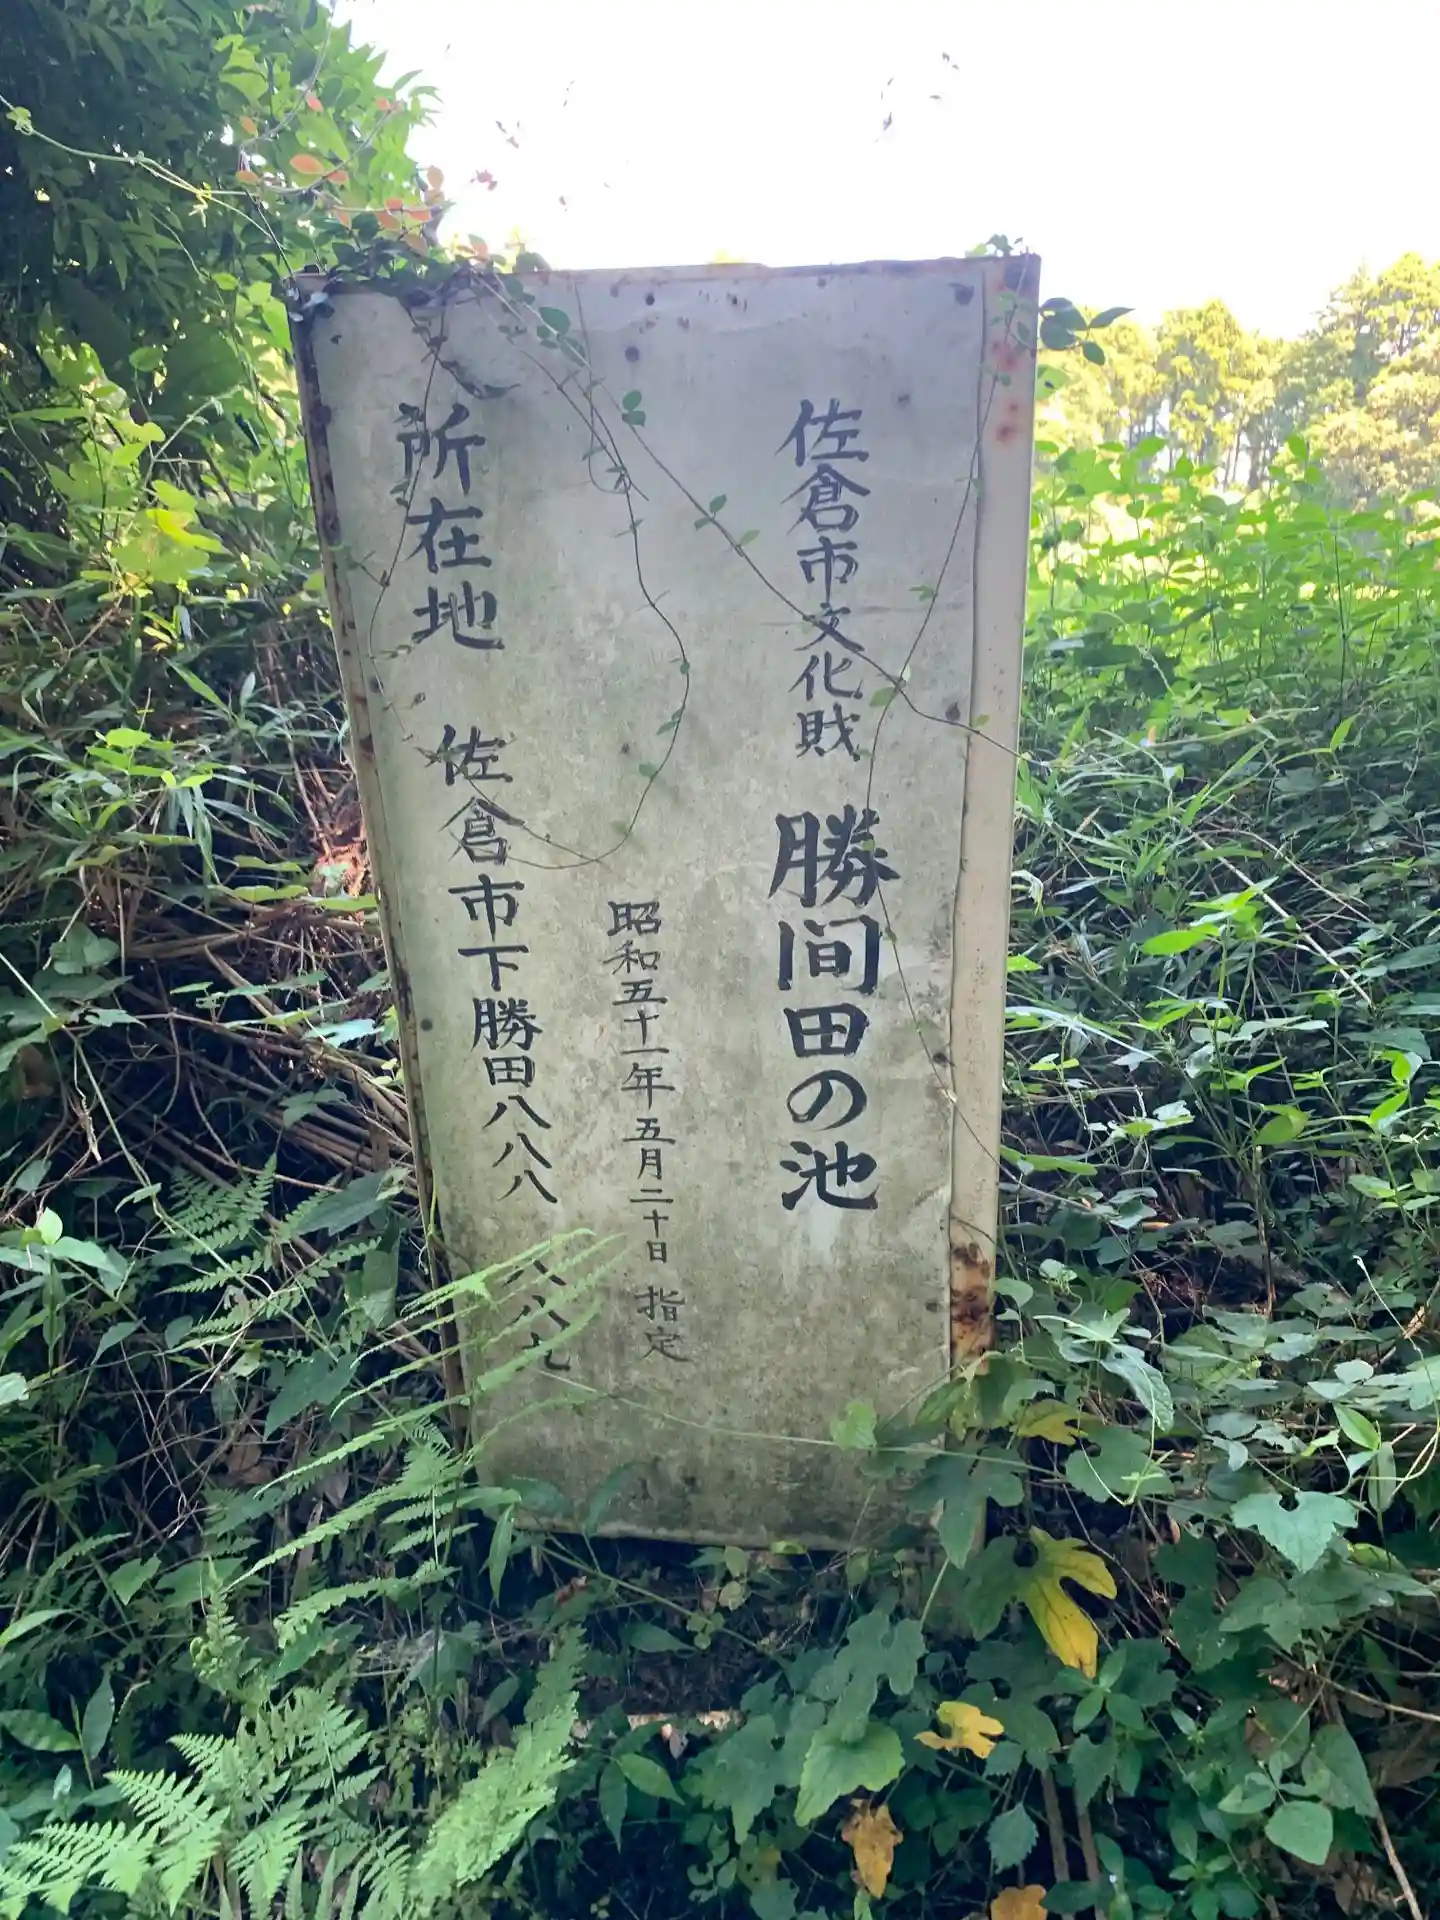 佐倉市文化財 勝间田の池
昭和五十一年五月二十日 指定
所在地 佐倉市下勝田八八八
八八七